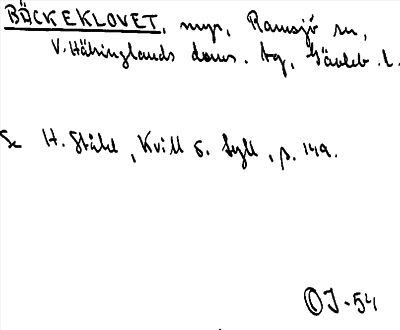 BÄCKEKLOVET, myr, Ramsjö sn,
V. Hälsinglands doms. tg, Gävleb. l.
Se H. Ståhl, Kvill o. Tyll, s. 149.
OJ-54